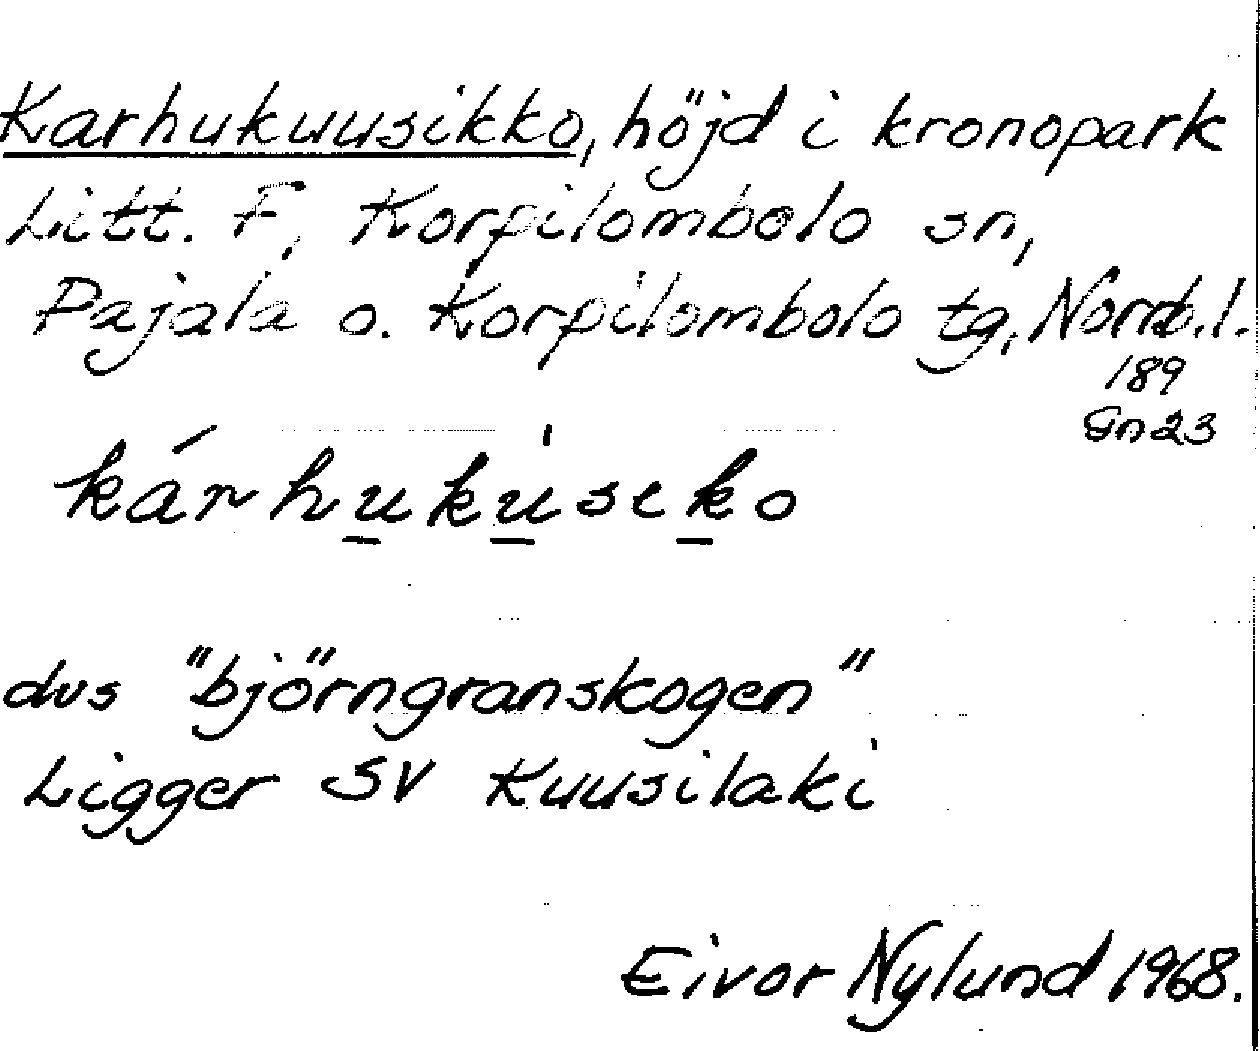 Karhukuusikko, höjd i kronopark
Litt. F, Korpilombolo sn,
Pajala o. Korpilombolo tg, Norrb.l.
189
Gn23
kárhukùsiko
dvs "björngranskogen"
Ligger SV Kuusilaki
Eivor Nylund 1968.